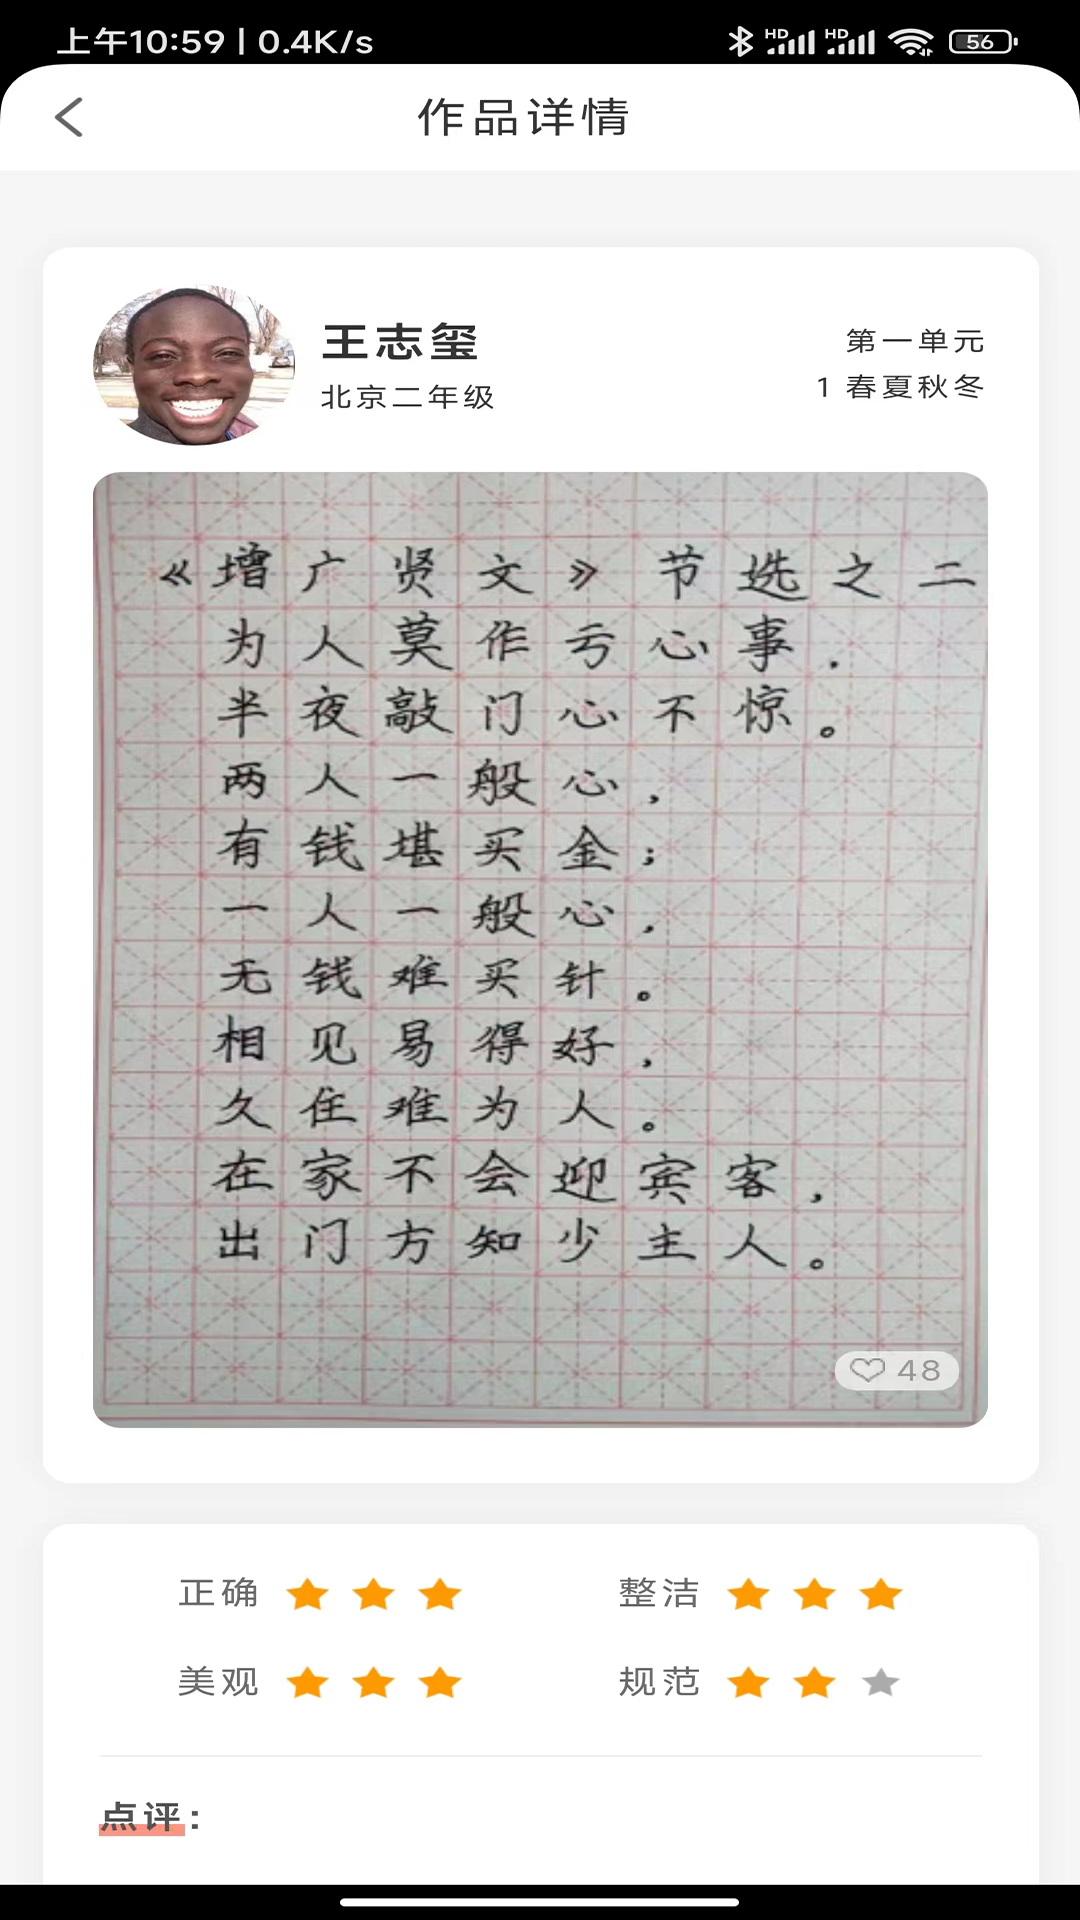 上午10:59 | 0.4K/s
HD HD 56
作品详情
王志玺
北京二年级
第一单元
1 春夏秋冬
《增广贤文》节选之二
为人莫作亏心事．
半夜敲门心不惊。
两人一般心，
有钱堪买金；
一人一般心，
无钱难买针。
相见易得好，
久住难为人。
在家不会迎宾客，
出门方知少主人。
48
正确
整洁
美观
规范
点评：